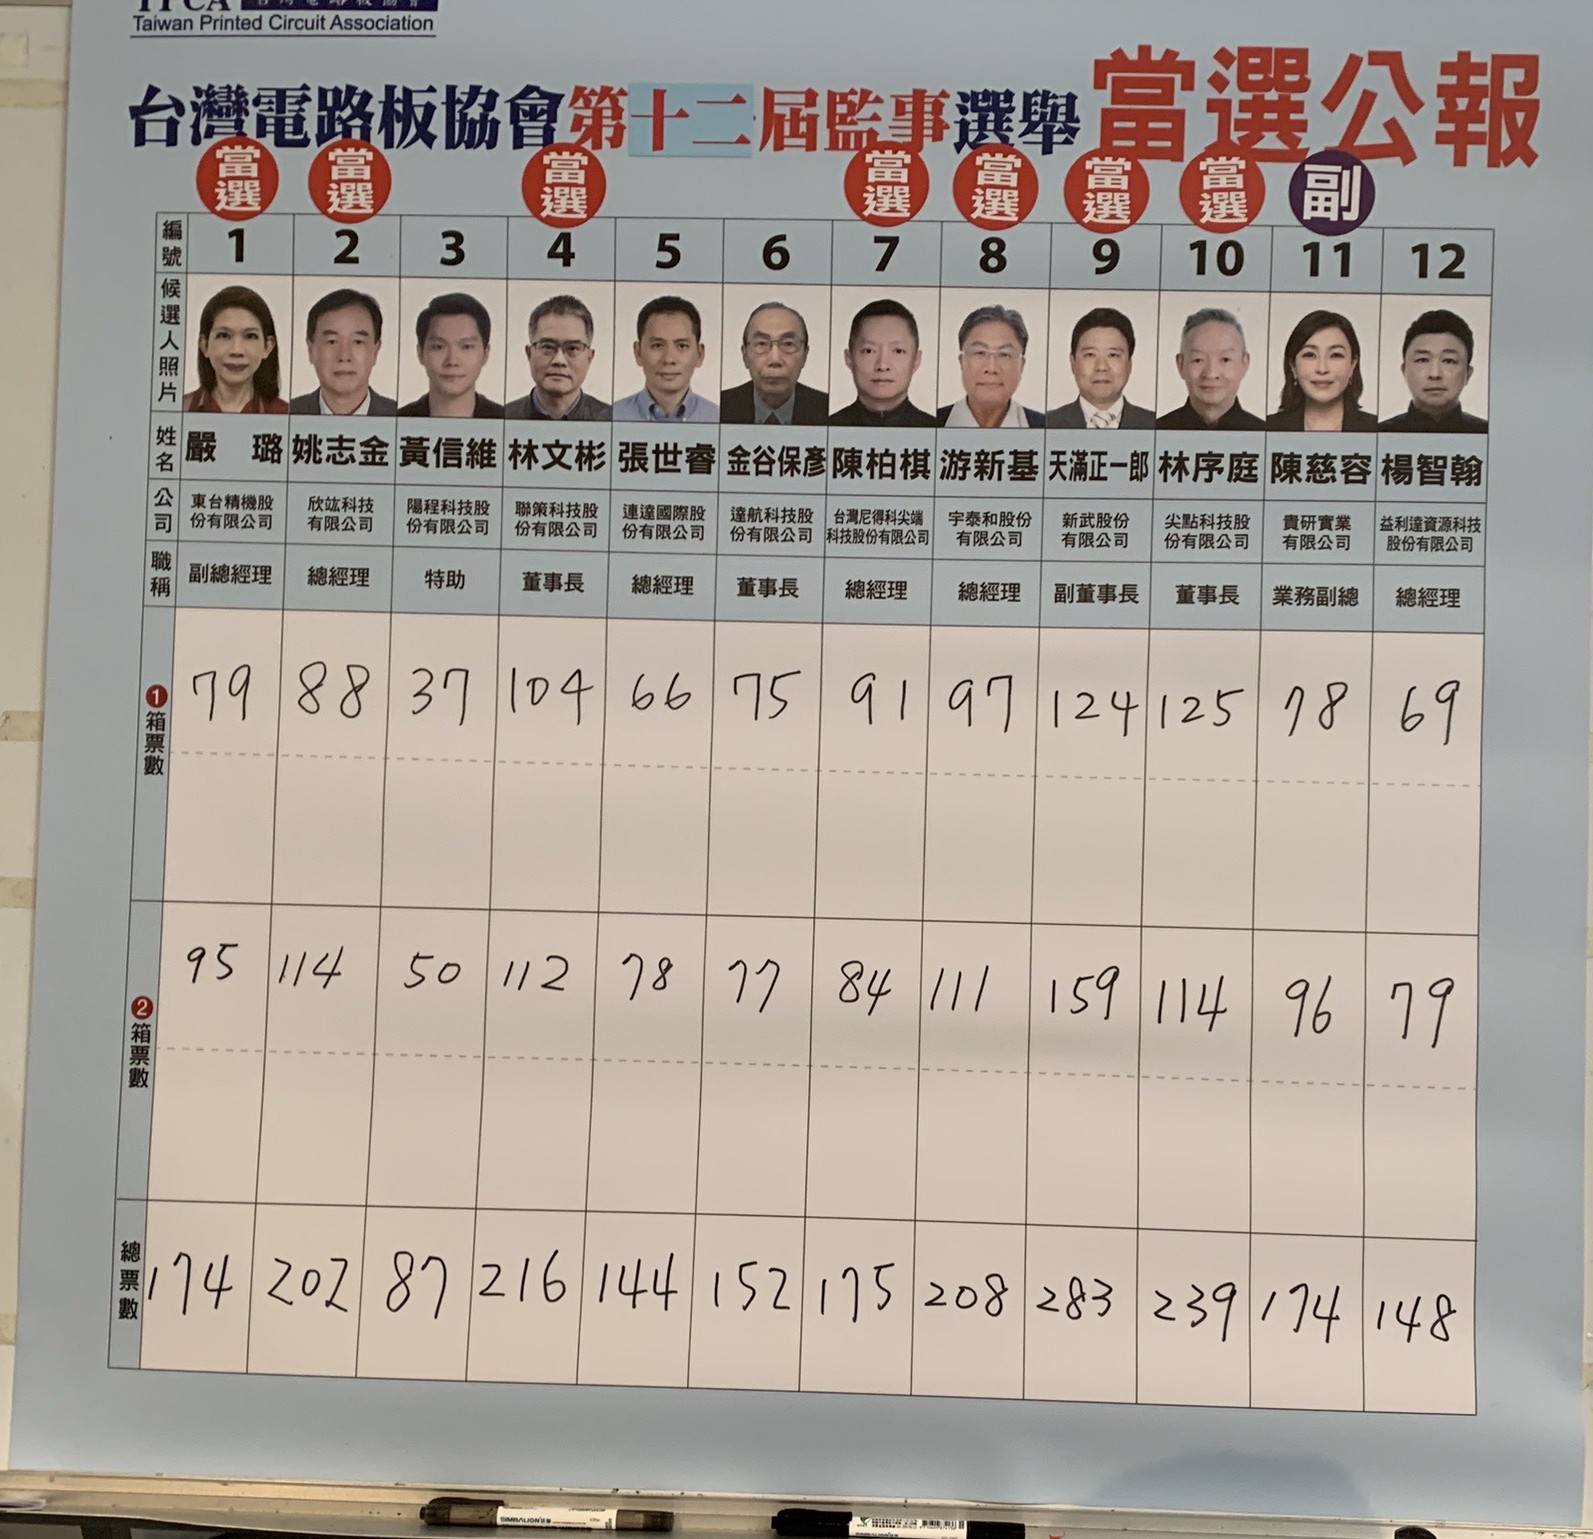 TPCA 台灣電路板協會
Taiwan Printed Circuit Association
台灣電路板協會第十二屆監事選舉當選公報
當選 當選 當選 當選 當選 當選 當選 副
編號 1 2 3 4 5 6 7 8 9 10 11 12
候選人照片
姓名 嚴 璐 姚志金 黃信維 林文彬 張世睿 金谷保彥 陳柏棋 游新基 天滿正一郎 林序庭 陳慈容 楊智翰
公司 東台精機股份有限公司 欣竑科技有限公司 陽程科技股份有限公司 聯策科技股份有限公司 連達國際股份有限公司 達航科技股份有限公司 台灣尼得科尖端科技股份有限公司 宇泰和股份有限公司 新武股份有限公司 尖點科技股份有限公司 貴研實業有限公司 益利達資源科技股份有限公司
職稱 副總經理 總經理 特助 董事長 總經理 董事長 總經理 總經理 副董事長 董事長 業務副總 總經理
1箱票數 79 88 37 104 66 75 91 97 124 125 78 69
2箱票數 95 114 50 112 78 77 84 111 159 114 96 79
總票數 174 202 87 216 144 152 175 208 283 239 174 148
SIMBALION